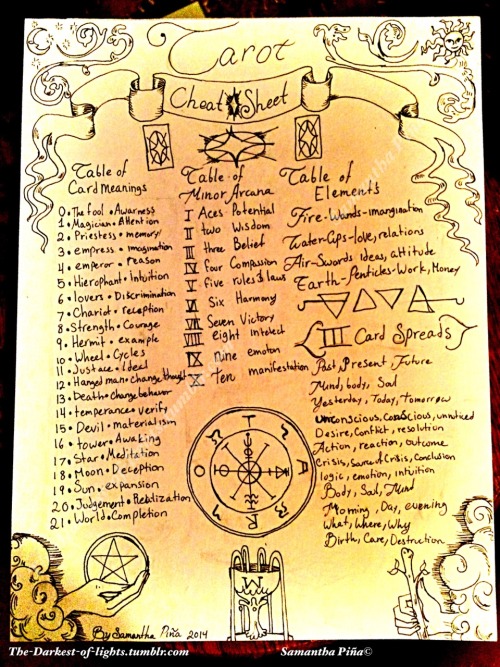 Tarot
Cheat Sheet
Table of
Card Meanings
0 • The fool • Awarness
1 • Magician • Attention
2 • Priestess • memory
3 • empress • imagination
4 • emperor • reason
5 • Hierophant • Intuition
6 • lovers • Discrimination
7 • Chariot • reception
8 • Strength • Courage
9 • Hermit • example
10 • Wheel • Cycles
11 • Justace • Ideal
12 • Hanged man • change thought
13 • Death • change behavor
14 • temperance • verify
15 • Devil • materialism
16 • tower • Awaking
17 • Star • Meditation
18 • Moon • Deception
19 • Sun • expansion
20 • Judgement • Realization
21 • World • Completion
Table of
Minor Arcana
I Aces Potential
II two Wisdom
III three Belief
IV four Compassion
V five rules & laws
VI Six Harmony
VII Seven Victory
VIII eight Intelect
IX nine emotion
X ten manifestation
Table of
Elements
Fire-Wands-imangination
Water-Cups-love, relations
Air-Swords ideas, attitude
Earth-Penticles-Work, Money
III Card Spreads
Past, Present, Future
Mind, body, Soul
Yesterday, Today, Tomorrow
Unconscious, Conscious, unnoticed
Desire, Conflict, resolution
Action, reaction, outcome
Crisis, Source of Crisis, Conclusion
logic, emotion, intuition
Body, Soul, Mind
Morning, Day, evening
What, Where, Why
Birth, Care, Destruction
T A R O
By Samantha Piña 2014
The-Darkest-of-lights.tumblr.com
Samantha Piña©